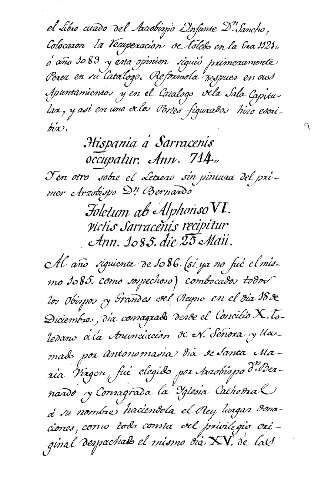 el Libro citado del Arzobispo è Infante Dn. Sancho,
colocaron la recuperacion de Toledo en la Era 1121
ó año 1083 y esta opinion siguió primeramente
Perez en su Catalogo. Reformola despues en sus
Apuntamientos y en el Catalogo de la Sala Capitu-
lar, y asi en uno de los Postes figurados hizo escri-
bir.
Hispania á Sarracenis
occupatur. Ann. 714
Y en otro sobre el Letrero sin pintura del pri-
mer Arzobispo Dn. Bernardo
Toletum ab Alphonso VI.
victis Sarracenis recipitur
Ann. 1085. die 25 Maii.
Al año siguiente de 1086. (si ya no fué el mis-
mo 1085. como sospecho) combocados todos
los Obispos y Grandes del Reyno en el dia 18 de
Diciembre, dia consagrado desde el Concilio X. to-
ledano à la Anunciacion de N. Señora, y lla-
mado por Antonomasia dia de Santa Ma-
ria Virgen, fué elegido por Arzobispo Dn. Ber-
nardo y Consagrada la Iglesia Cathedral
á su nombre haciendola el Rey largas dona-
ciones, como todo consta del privilegio ori-
ginal despachado el mismo dia XV. de las